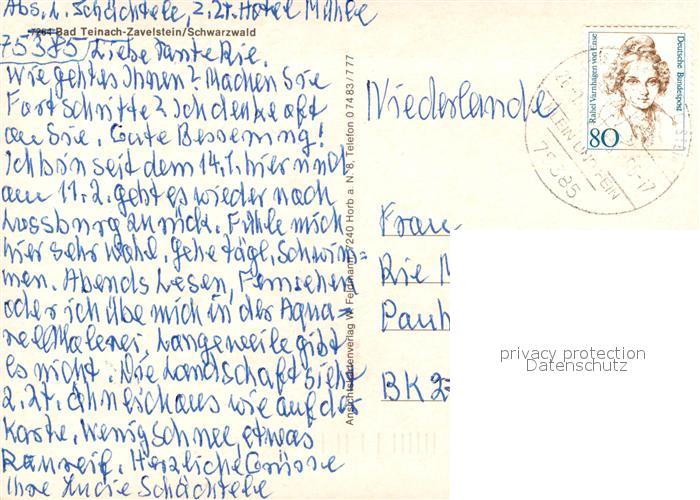 Abs. L. Schächtele, z. Zt. Hotel Mühle
7264 Bad Teinach-Zavelstein/Schwarzwald
75385 Liebe Tante Rie.
Wie geht es Ihnen? Machen Sie
Fortschritte? Ich denke oft
an Sie. Gute Besserung!
Ich bin seit dem 14.1. hier und
am 11.2. geht es wieder nach
Lossburg zurück. Fühle mich
hier sehr wohl, gehe tägl. Schwim=
men. Abends Lesen, Fernsehen
oder ich übe mich in der Aqua-
rell Malerei. Langeweile gibt
es nicht. Die Landschaft sieht
z. Zt. ähnlich aus wie auf der
Karte. Wenig Schnee, etwas
Rauhreif. Herzliche Grüsse
Ihre Lucie Schächtele
Ansichtskartenverlag W. Feldmann, 7240 Horb a. N. 8, Telefon 07483/777
Niederlande
Frau
Rie
BK
Rahel Varnhagen von Ense
Deutsche Bundespost
80
75385
privacy protection
Datenschutz